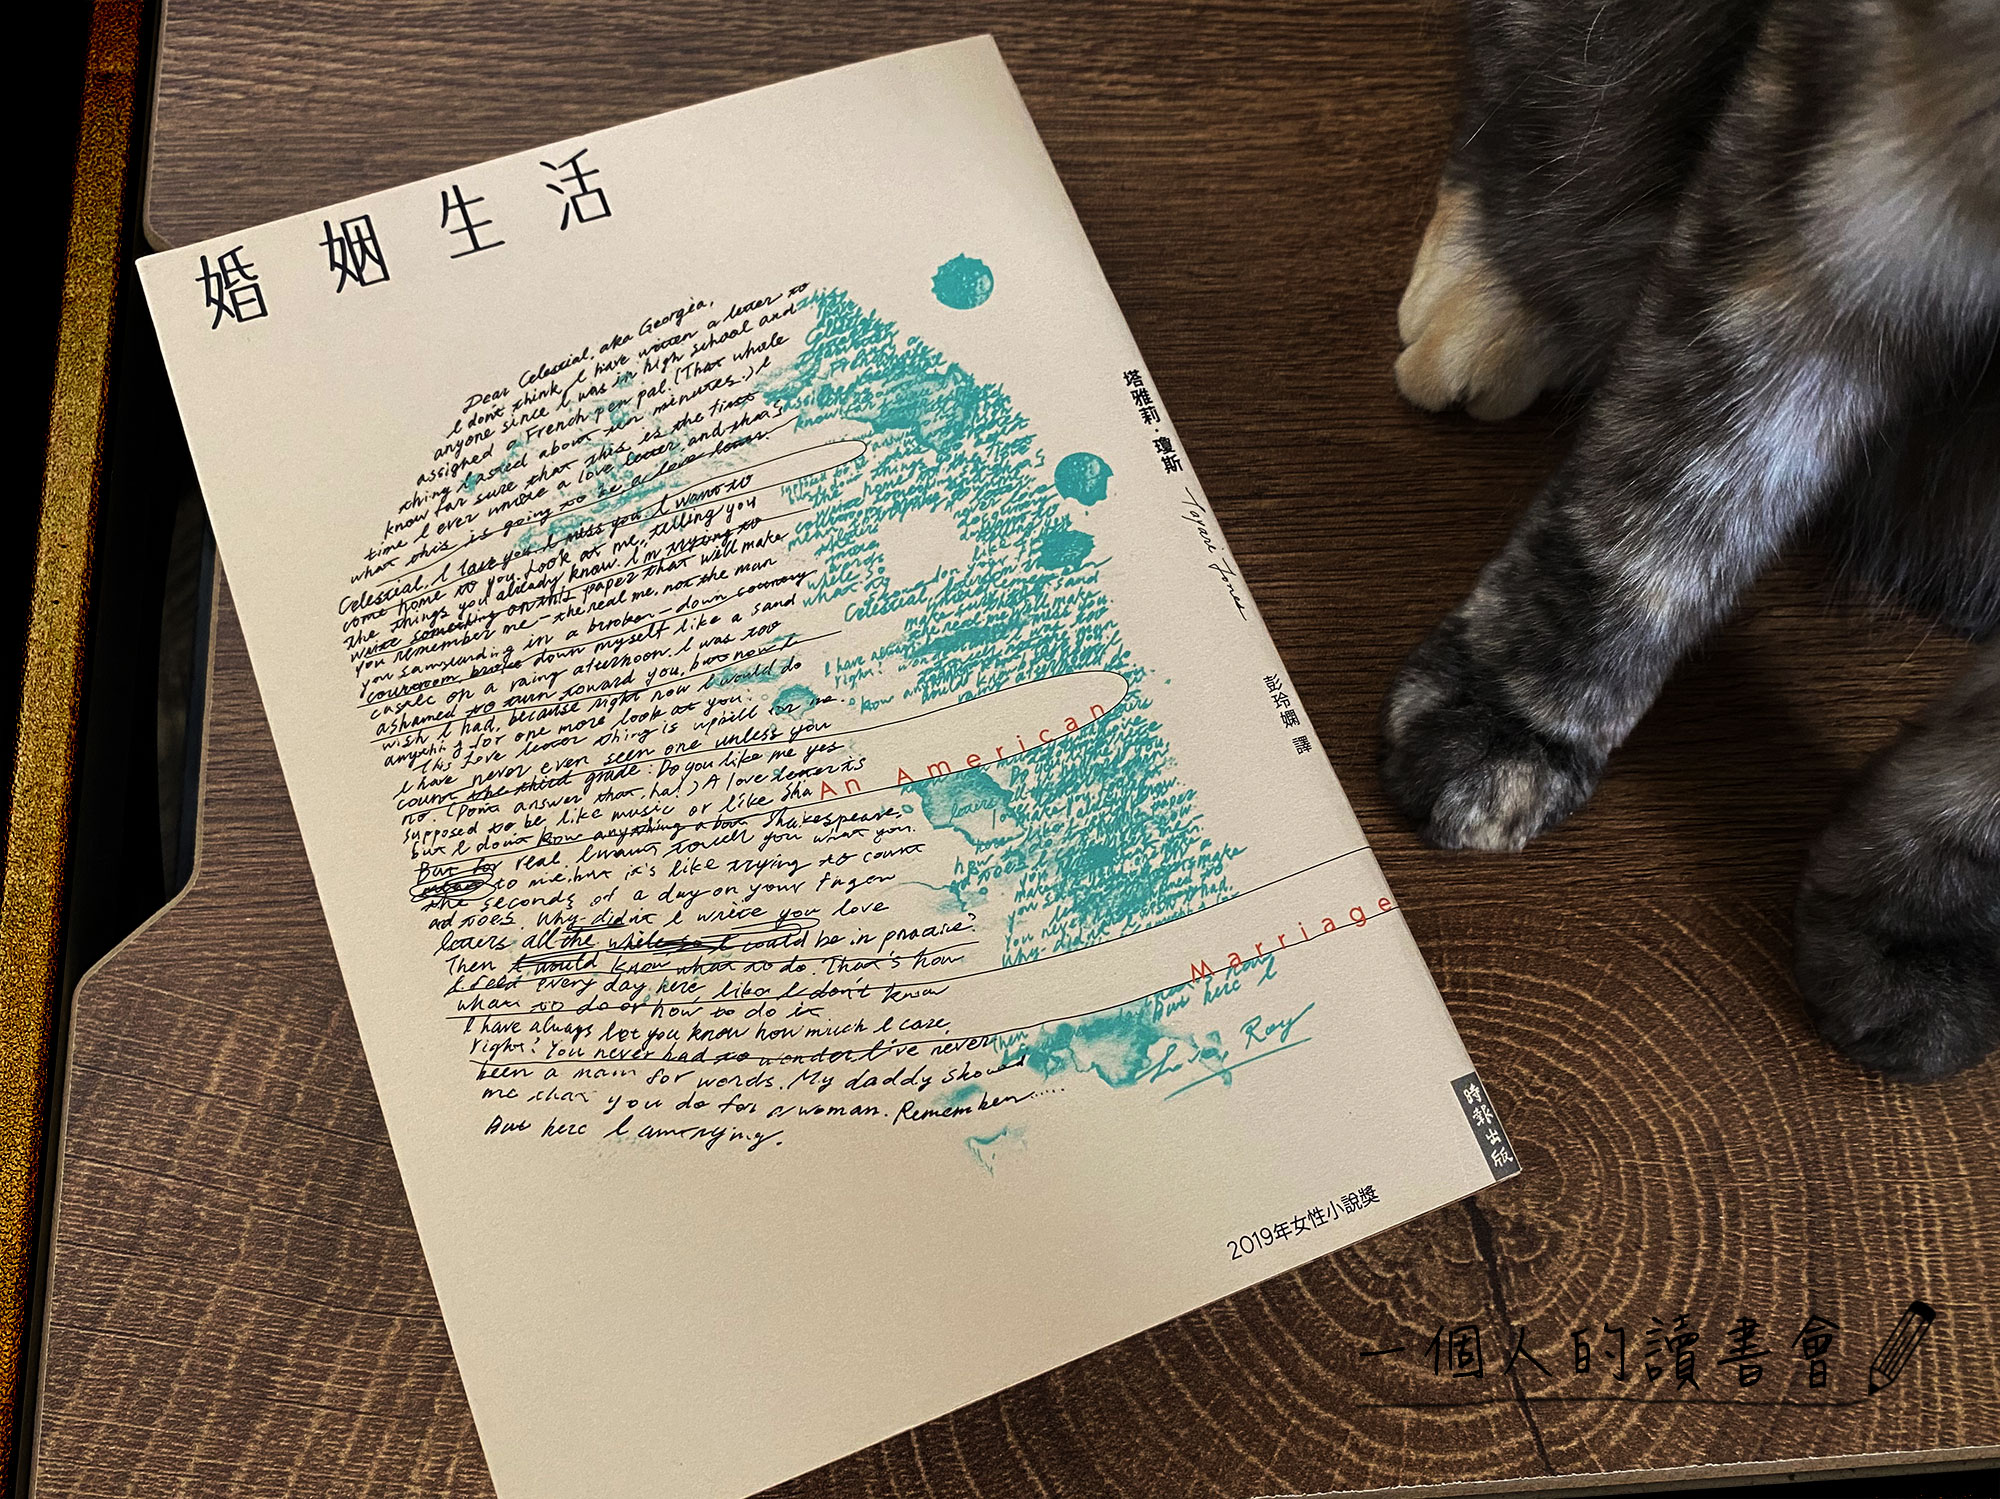 婚姻生活
Dear Celestial, aka Georgia,
I don't think I have written a letter to
anyone since I was in high school and
assigned a French pen pal. (That whole
thing lasted about ten minutes.) I
know for sure that this is the first
time I ever wrote a love letter, and that's
what this is going to be a love letter.
Celestial, I love you. I miss you. I want to
come home to you. Look at me, telling you
the things you already know. I'm trying to
write something on this paper that will make
you remember me - the real me, not the man
you saw standing in a broken-down country
courtroom, broke down myself like a sand
castle on a rainy afternoon. I was too
ashamed to turn toward you, but now I
wish I had, because right now I would do
anything for one more look at you.
This love letter thing is uphill for me.
I have never even seen one unless you
count the third grade. Do you like me yes
no. (Don't answer that, ha!) A love letter is
supposed to be like music or like Sha
but I don't know anything about Shakespeare.
But for real, I want to tell you what you
mean to me, but it's like trying to count
the seconds of a day on your finger
ad toes. Why didn't I write you love
letters all the while so I could be in practice?
Then I would know what to do. That's how
I feel every day here like I don't know
what to do or how to do it
I have always let you know how much I care,
right? You never had to wonder. I've never
been a man for words. My daddy showed
me that you do for a woman. Remember......
But here I am trying.
Love, Roy
An American
Marriage
塔雅莉·瓊斯 Tayari Jones
彭玲嫻 譯
時報出版
2019年女性小說獎
一個人的讀書會